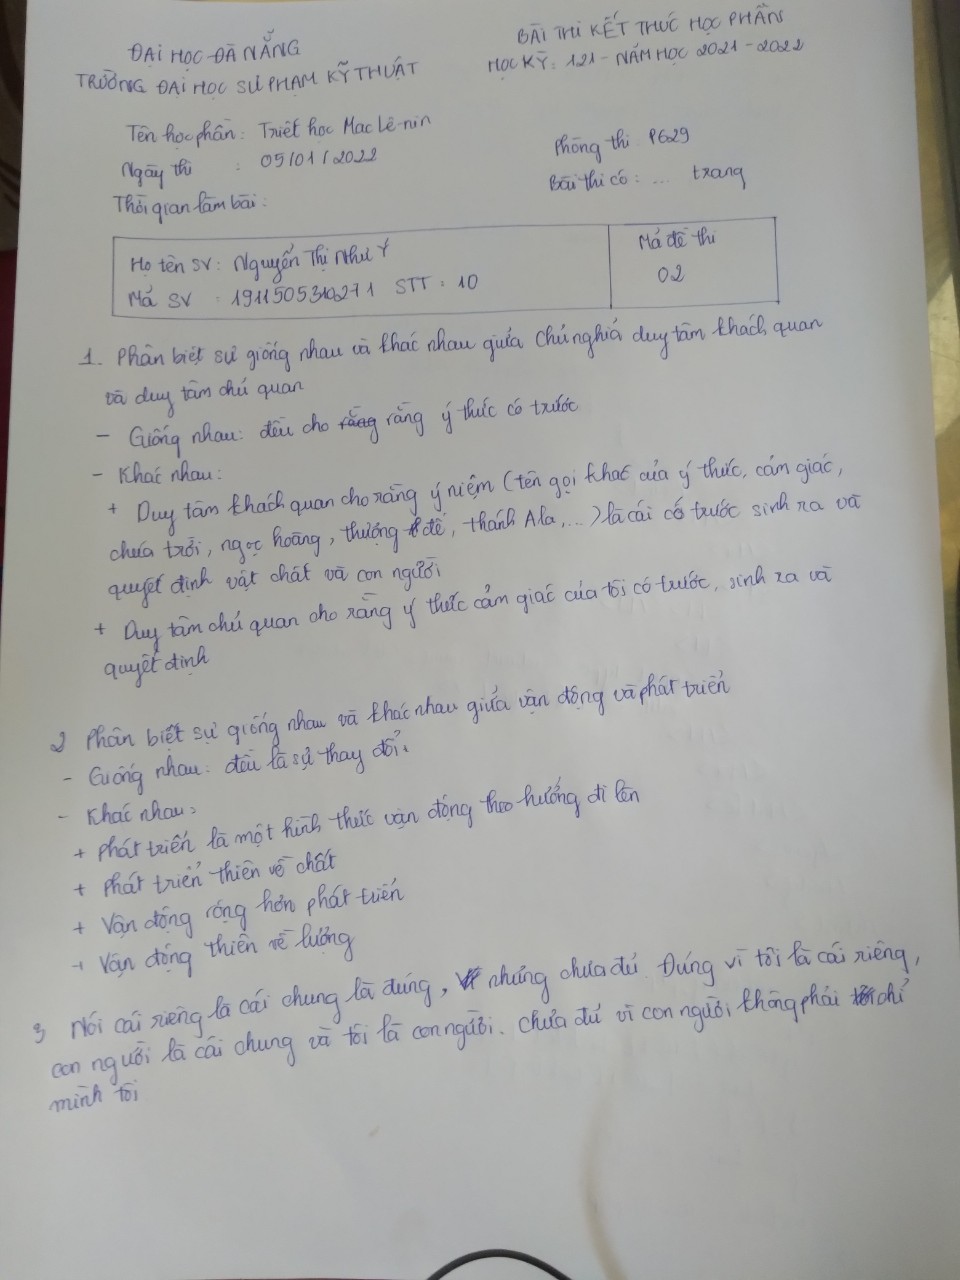 ĐẠI HỌC ĐÀ NẴNG
TRƯỜNG ĐẠI HỌC SƯ PHẠM KỸ THUẬT
BÀI THI KẾT THÚC HỌC PHẦN
HỌC KỲ: 121 - NĂM HỌC 2021 - 2022
Tên học phần: Triết học Mac Lê-nin
Ngày thi : 05/01/2022
Thời gian làm bài:
Phòng thi P629
Bài thi có: ... trang
Họ tên SV: Nguyễn Thị Như Ý
Mã SV : 1911505310271 STT: 10
Mã đề thi
02
1. Phân biệt sự giống nhau và khác nhau giữa Chủ nghĩa duy tâm khách quan
và duy tâm chủ quan
- Giống nhau: đều cho rằng rằng ý thức có trước
- Khác nhau:
+ Duy tâm khách quan cho rằng ý niệm (tên gọi khác của ý thức, cảm giác,
chúa trời, ngọc hoàng, thượng đế, thánh Ala,...) là cái có trước sinh ra và
quyết định vật chất và con người
+ Duy tâm chủ quan cho rằng ý thức cảm giác của tôi có trước, sinh ra và
quyết định
2 Phân biệt sự giống nhau và khác nhau giữa vận động và phát triển
- Giống nhau: đều là sự thay đổi.
- Khác nhau:
+ Phát triển là một hình thức vận động theo hướng đi lên
+ Phát triển thiên về chất
+ Vận động rộng hơn phát triển
+ Vận động thiên về lượng
3 Nói cái riêng là cái chung là đúng, nhưng chưa đủ. Đúng vì tôi là cái riêng,
con người là cái chung và tôi là con người. Chưa đủ vì con người không phải chỉ
mình tôi